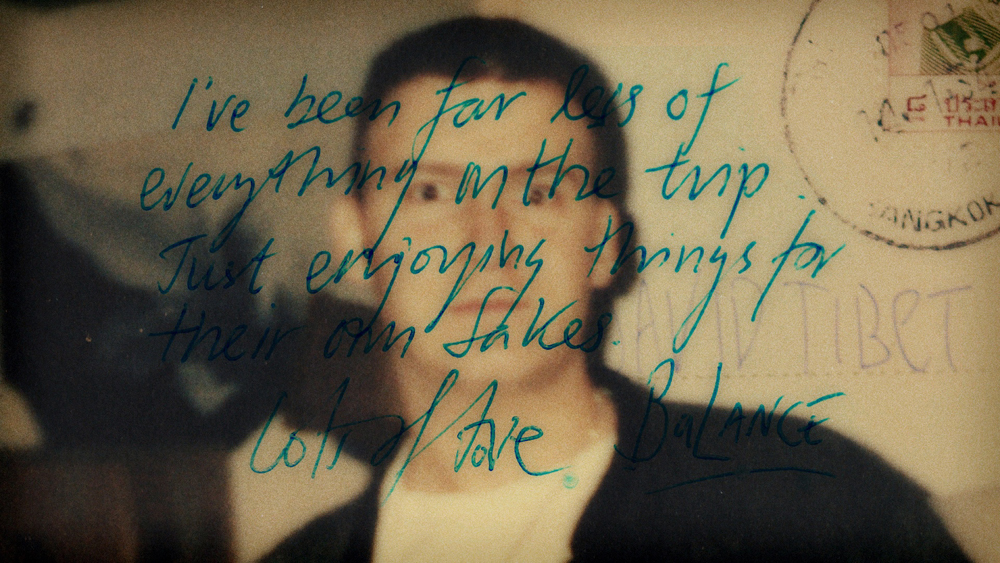 I've been far less of
everything on the trip.
Just enjoying things for
their own sakes.
Lots of love BaLANCE
TIBET
THAI
BANGKOK